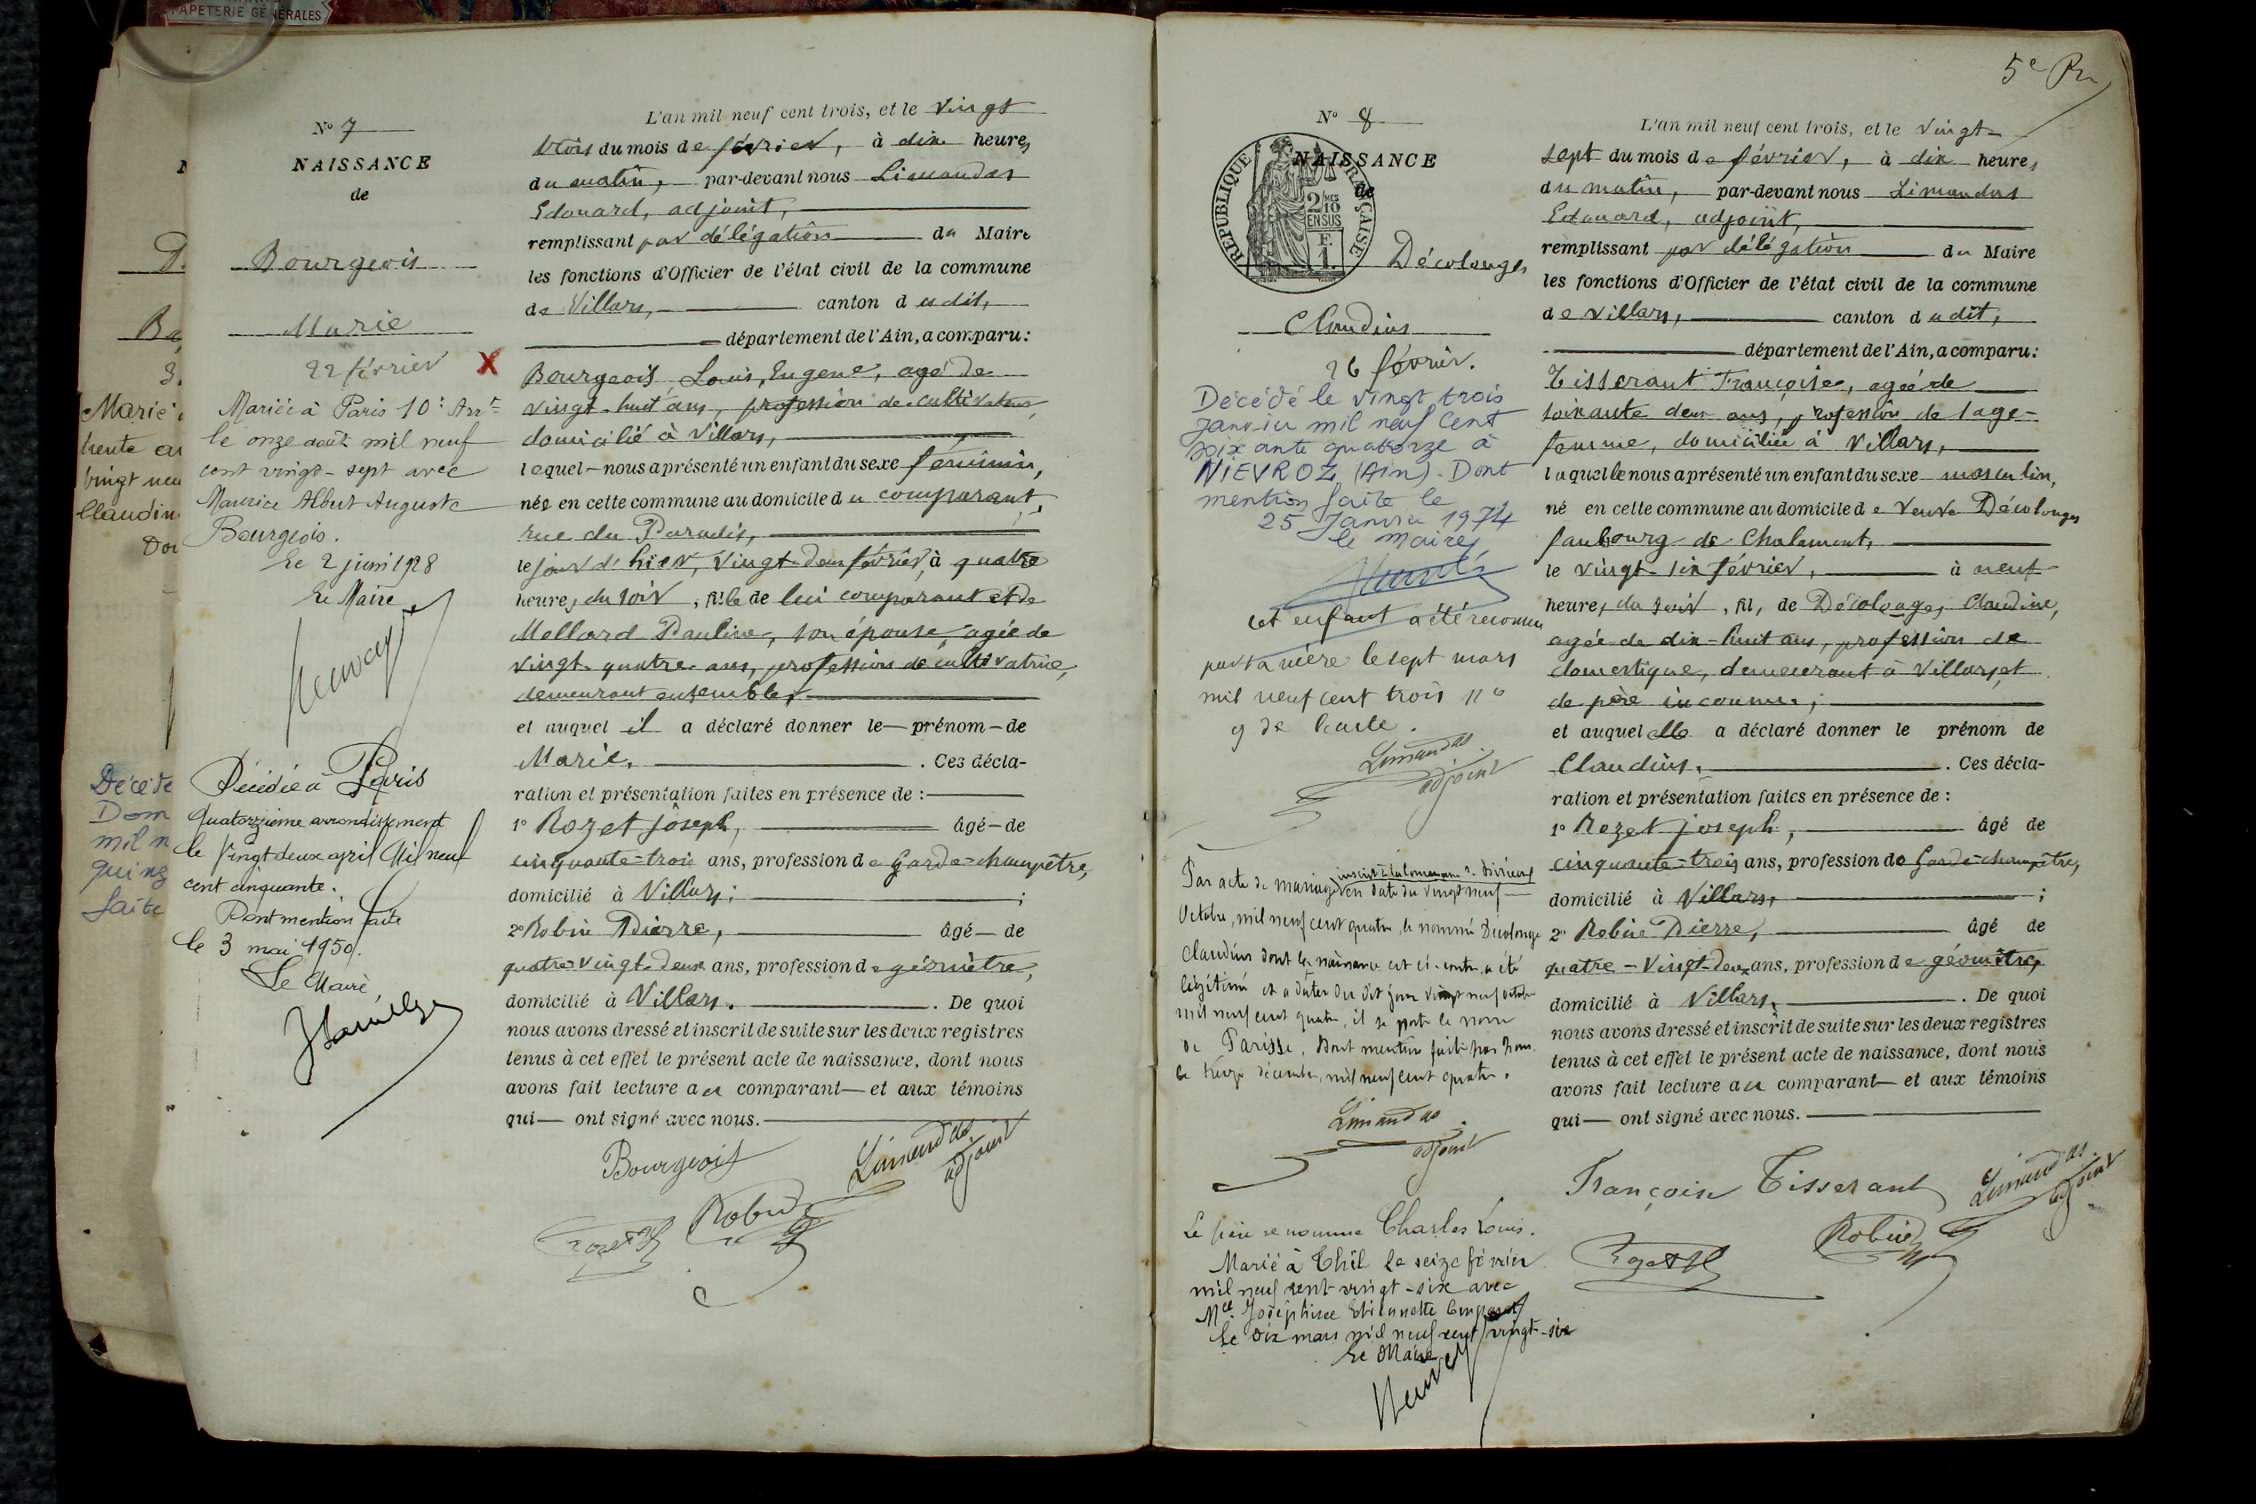 PAPETERIE GÉNÉRALES
No 7
NAISSANCE
de
Bourgeois
Marie
22 février
X
Mariée à Paris 10e Arrt
le onze août mil neuf
cent vingt-sept avec
Maurice Albert Auguste
Bourgeois.
Le 2 juin 1928
Le Maire
Décédée à Paris
quatorzième arrondissement
le vingt deux avril mil neuf
cent cinquante.
Dont mention faite
le 3 mai 1950.
Le Maire,
L'an mil neuf cent trois, et le vingt
trois du mois de février, à dix heures
du matin, par-devant nous Limandas
Edouard, adjoint,
remplissant par délégation du Maire
les fonctions d'Officier de l'état civil de la commune
de Villars, canton dudit,
département de l'Ain, a comparu:
Bourgeois Louis, Eugene, agé de
vingt-huit ans, profession de cultivateur,
domicilié à Villars,
lequel nous a présenté un enfant du sexe féminin,
née en cette commune au domicile du comparant,
rue du Paradis,
le jour d'hier, vingt-deux février à quatre
heures du soir, fille de lui comparant et de
Mollard Pauline, son épouse, agée de
vingt-quatre ans, profession de cultivatrice,
demeurant ensemble,
et auquel il a déclaré donner le prénom de
Marie. Ces décla-
ration et présentation faites en présence de :
1o Rozet joseph, âgé de
cinquante-trois ans, profession de Garde-champêtre,
domicilié à Villars;
2o Robin Pierre, âgé de
quatre-vingt-deux ans, profession de géomètre,
domicilié à Villars. De quoi
nous avons dressé et inscrit de suite sur les deux registres
tenus à cet effet le présent acte de naissance, dont nous
avons fait lecture au comparant et aux témoins
qui ont signé avec nous.
Bourgeois
Limandas
adjoint
Rozet
Robin
5e
No 8
NAISSANCE
de
RÉPUBLIQUE FRANÇAISE
2/10 EN SUS
Décolonges
Claudius
26 février.
Décédé le vingt trois
janvier mil neuf cent
soixante quatorze à
NIEVROZ (Ain). Dont
mention faite le
25 Janvier 1974
le maire,
Cet enfant a été reconnu
par sa mère le sept mars
mil neuf cent trois no
9 de l'acte.
Limandas
adjoint
Par acte de mariage inscrit à la commune de
en date du vingt neuf
Octobre, mil neuf cent quatre, le nommé Decolonge
Claudius dont la naissance est ci-contre, a été
légitimé et a dater du dit jour vingt neuf octobre
mil neuf cent quatre, il se porte le nom
de Parisse, dont mention faite par nous
le treize décembre, mil neuf cent quatre.
Limandas
adjoint
Le père se nomme Charles Louis.
Marié à Thil le seize février
mil neuf cent vingt-six avec
Mlle Joséphine Etiennette
Le dix mars mil neuf cent vingt-six
Le Maire
L'an mil neuf cent trois, et le vingt-
sept du mois de février, à dix heures
du matin, par-devant nous Limandas
Edouard, adjoint,
remplissant par délégation du Maire
les fonctions d'Officier de l'état civil de la commune
de Villars, canton dudit,
département de l'Ain, a comparu:
Tisserant Françoise, agée de
soixante deux ans, profession de sage-
femme, domiciliée à Villars,
laquelle nous a présenté un enfant du sexe masculin,
né en cette commune au domicile de Veuve Décolonges
faubourg de Chalamont,
le vingt-six février, à neuf
heures du soir, fils de Décolonges Claudine,
agée de dix-huit ans, profession de
domestique, demeurant à Villars, et
de père inconnu;
et auquel elle a déclaré donner le prénom de
Claudius. Ces décla-
ration et présentation faites en présence de :
1o Rozet joseph, âgé de
cinquante-trois ans, profession de Garde-champêtre,
domicilié à Villars, ;
2o Robin Pierre, âgé de
quatre-vingt-deux ans, profession de géomètre,
domicilié à Villars. De quoi
nous avons dressé et inscrit de suite sur les deux registres
tenus à cet effet le présent acte de naissance, dont nous
avons fait lecture au comparant et aux témoins
qui ont signé avec nous.
Françoise Tisserant
Limandas
adjoint
Robin
Rozet